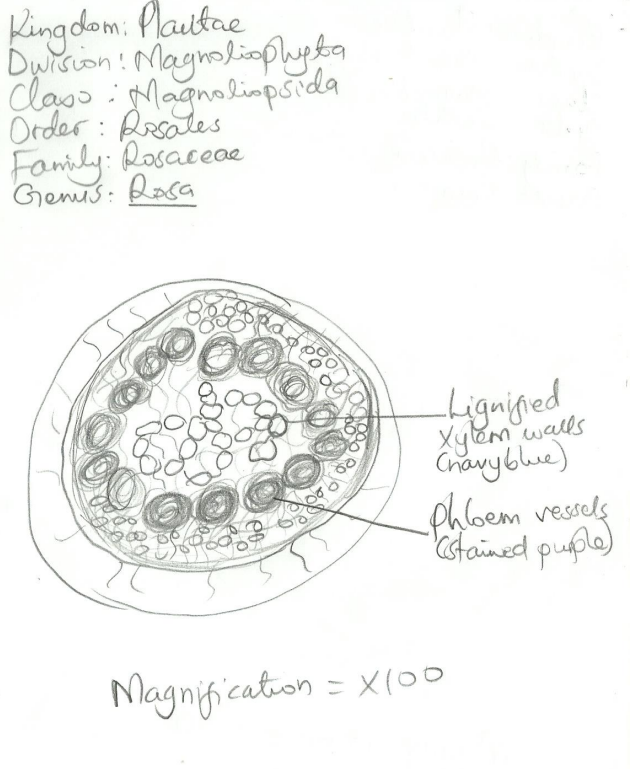 Kingdom: Plantae
Division: Magnoliophyta
Class: Magnoliopsida
Order: Rosales
Family: Rosaceae
Genus: Rosa
Lignified
xylem walls
(navy blue)
Phloem vessels
(stained purple)
Magnification = x100